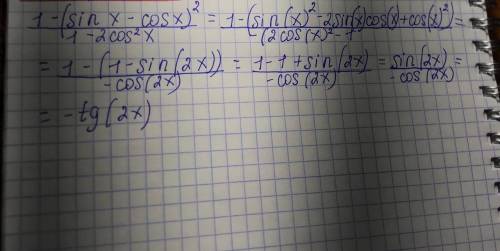 1-(sin x - cosx)² / 1-2cos²x = 1-(sin(x)²-2sin(x)cos(x)+cos(x)²) / -(2cos(x)²-1 =
= 1-(1-sin(2x)) / -cos(2x) = 1-1+sin(2x) / -cos(2x) = sin(2x) / -cos(2x) =
= -tg(2x)